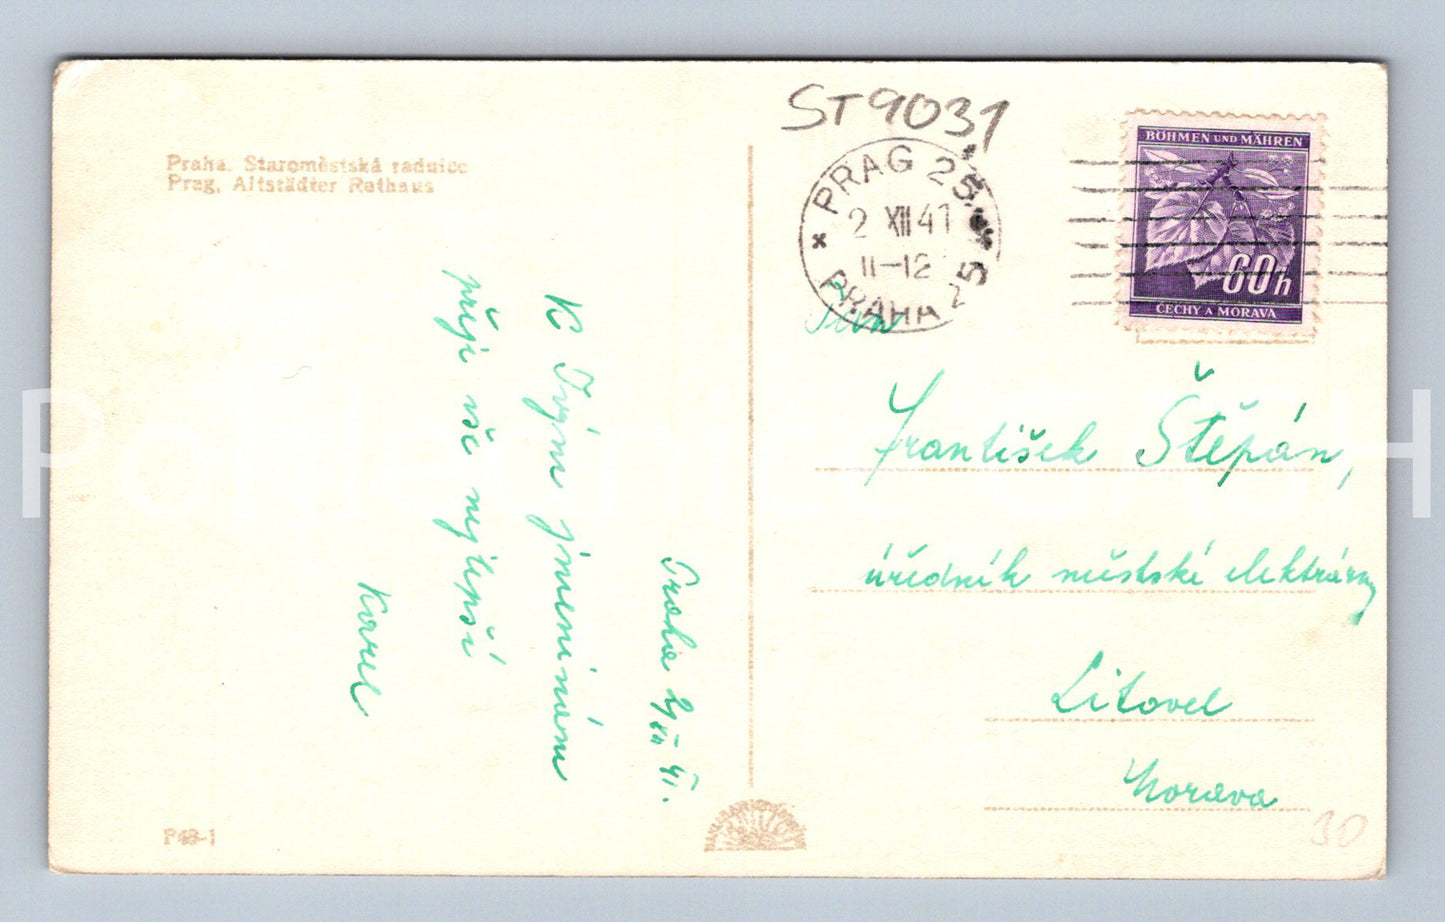 Praha. Staroměstská radnice
Prag, Altstädter Rathaus
Praha 2/XII 41.
K Tvým jmeninám
přeji vše nejlepší
Karel
P48-1
ST9031
PRAG 25
2 XII 41
11-12
PRAHA 25
BÖHMEN UND MÄHREN
60h
ČECHY A MORAVA
Pan
František Štěpán,
úředník městské elektrárny
Litovel
Morava
30